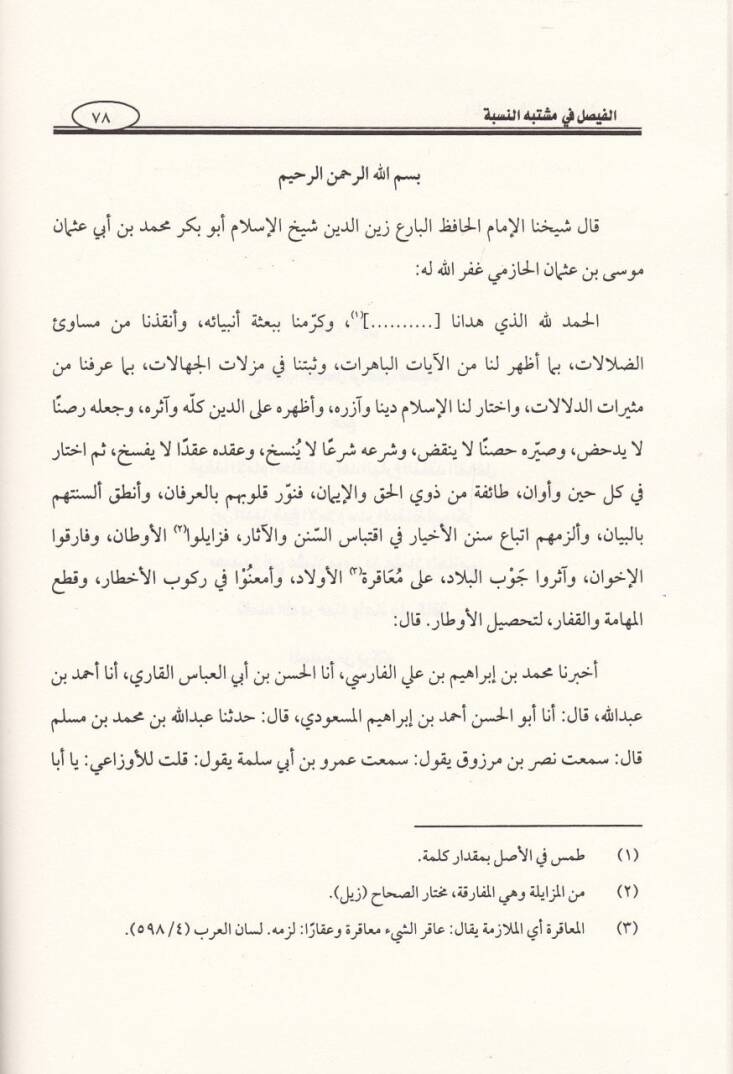 الفيصل في مشتبه النسبة
٧٨
بسم الله الرحمن الرحيم
قال شيخنا الإمام الحافظ البارع زين الدين شيخ الإسلام أبو بكر محمد بن أبي عثمان
موسى بن عثمان الحازمي غفر الله له:
الحمد لله الذي هدانا [..........](١)، وكرّمنا ببعثة أنبيائه، وأنقذنا من مساوئ
الضلالات، بما أظهر لنا من الآيات الباهرات، وثبتنا في مزلات الجهالات، بما عرفنا من
مثيرات الدلالات، واختار لنا الإسلام دينا وآزره، وأظهره على الدين كلّه وآثره، وجعله رصنًا
لا يدحض، وصيّره حصنًا لا ينقض، وشرعه شرعًا لا يُنسخ، وعقده عقدًا لا يفسخ، ثم اختار
في كل حين وأوان، طائفة من ذوي الحق والإيمان، فنوّر قلوبهم بالعرفان، وأنطق ألسنتهم
بالبيان، وألزمهم اتباع سنن الأخيار في اقتباس السّنن والآثار، فزايلوا(٢) الأوطان، وفارقوا
الإخوان، وآثروا جَوْب البلاد، على مُعَاقرة(٣) الأولاد، وأمعنُوْا في ركوب الأخطار، وقطع
المهامة والقفار، لتحصيل الأوطار. قال:
أخبرنا محمد بن إبراهيم بن علي الفارسي، أنا الحسن بن أبي العباس القاري، أنا أحمد بن
عبدالله، قال: أنا أبو الحسن أحمد بن إبراهيم المسعودي، قال: حدثنا عبدالله بن محمد بن مسلم
قال: سمعت نصر بن مرزوق يقول: سمعت عمرو بن أبي سلمة يقول: قلت للأوزاعي: يا أبا
(١) طمس في الأصل بمقدار كلمة.
(٢) من المزايلة وهي المفارقة، مختار الصحاح (زيل).
(٣) المعاقرة أي الملازمة يقال: عاقر الشيء معاقرة وعقارًا: لزمه. لسان العرب (٤/ ٥٩٨).